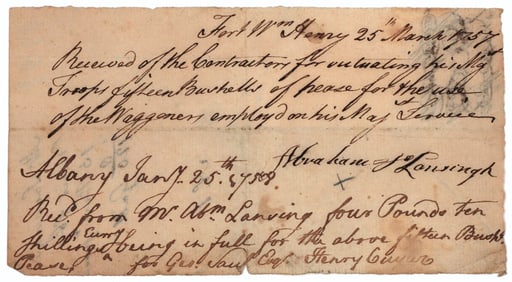 Fort Wm Henry 25th March 1757
Received of the Contractors for victualing his Majts
Troops fifteen Bushells of pease for the use
of the Waggoners employd on his Majts Service
Abraham Lansingh
Albany Jany. 25th 1758.
Recd. from Mr. Abm Lansing four Pounds ten
shillings Curry being in full for the above fifteen Bushs.
Pease for Geo. Saul Esqr Henry Cuyler